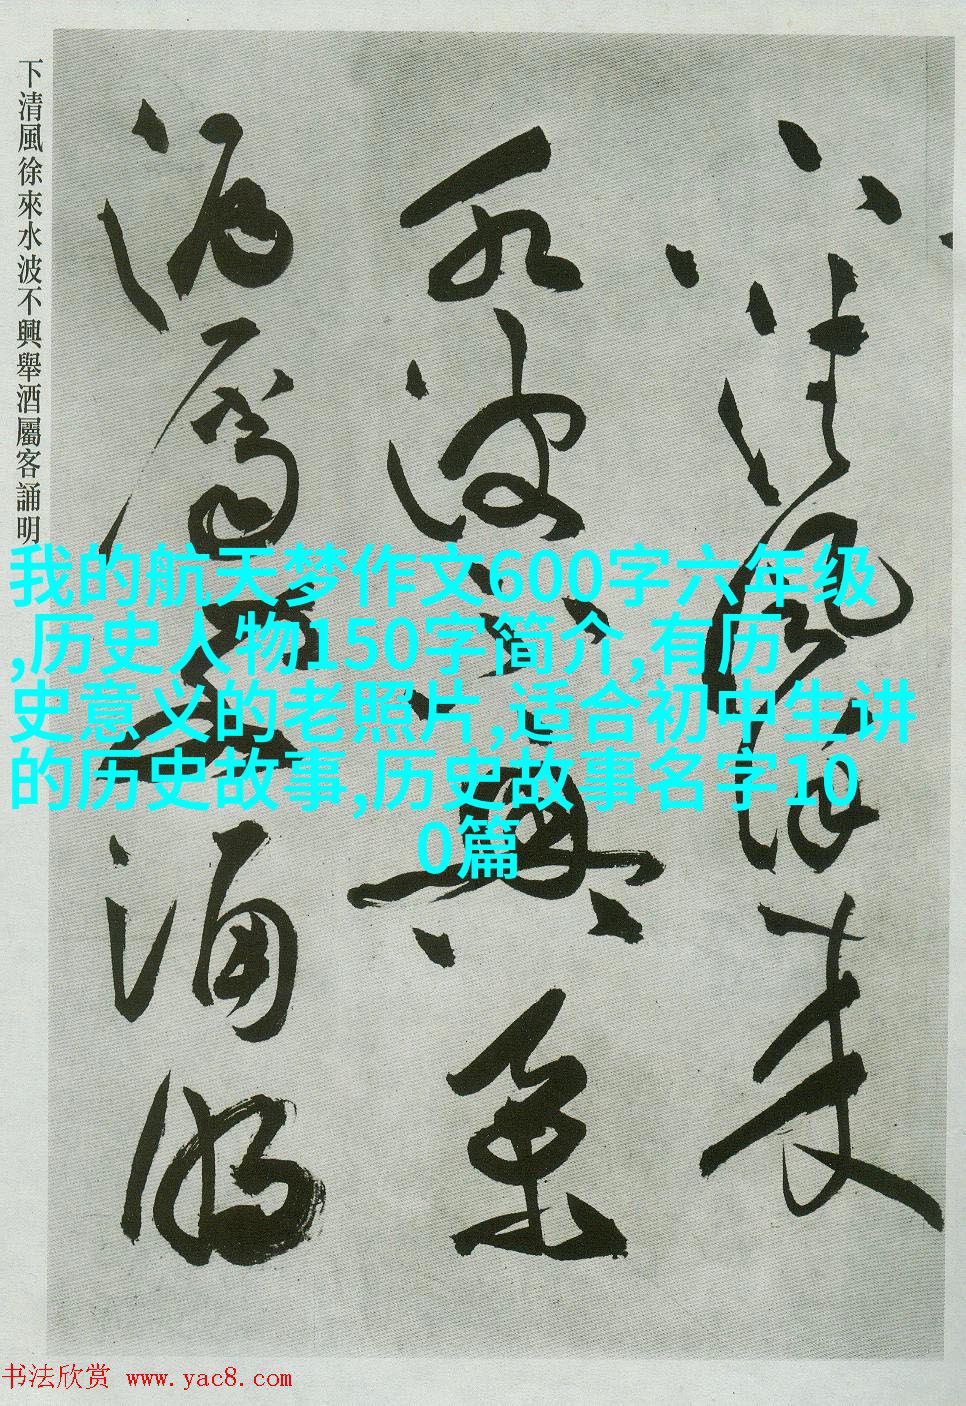 下清風徐來水波不興舉酒屬客誦明
下
清風徐來
水波不興舉
酒屬客誦明
我的航天梦作文600字六年级
,历史人物150字简介,有历
史意义的老照片,适合初中生讲
的历史故事,历史故事名字10
0篇
书法欣赏 www.yac8.com